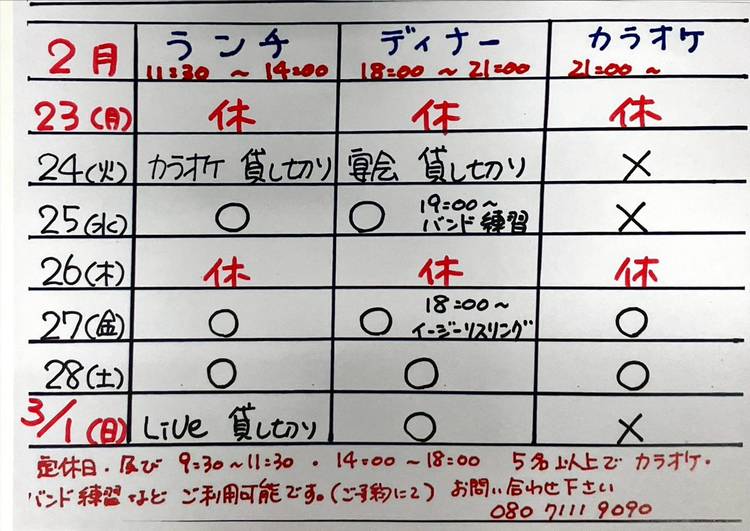 2月 ランチ ディナー カラオケ
11:30 ~ 14:00 18:00 ~ 21:00 21:00 ~
23(月) 休 休 休
24(火) カラオケ 貸し切り 宴会 貸し切り ×
25(水) ○ ○ 19:00~ バンド練習 ×
26(木) 休 休 休
27(金) ○ ○ 18:00~ イージーリスリング ○
28(土) ○ ○ ○
3/1(日) Live 貸し切り ○ ×
定休日・及び 9:30~11:30 ・ 14:00~18:00 5名以上で カラオケ・
バンド練習など ご利用可能です。(ご予約にて) お問い合わせ下さい
080 7111 9090